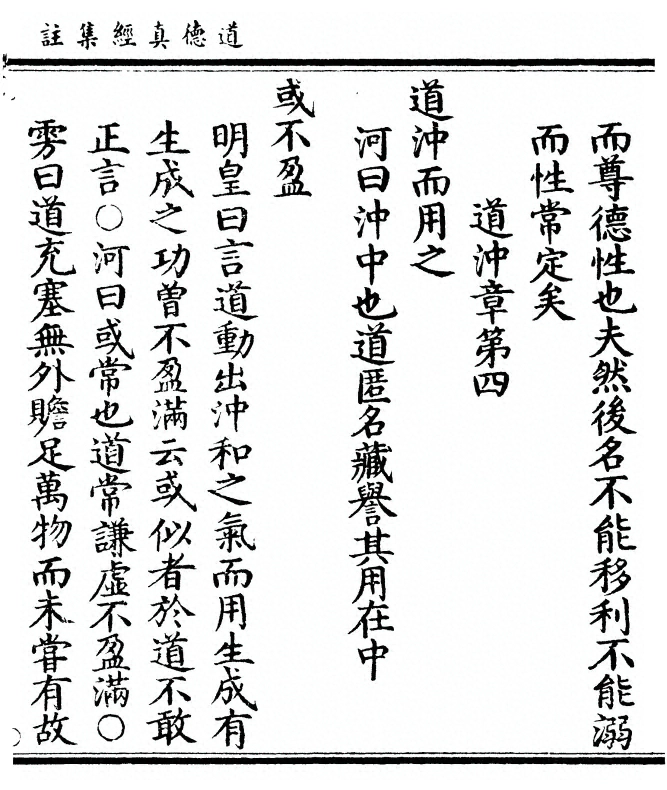 道德真經集註
而尊德性也夫然後名不能移利不能溺
而性常定矣
道沖章第四
道沖而用之
河曰沖中也道匿名藏譽其用在中
或不盈
明皇曰言道動出沖和之氣而用生成有
生成之功曾不盈滿云或似者於道不敢
正言○河曰或常也道常謙虛不盈滿○
雱曰道充塞無外贍足萬物而未嘗有故